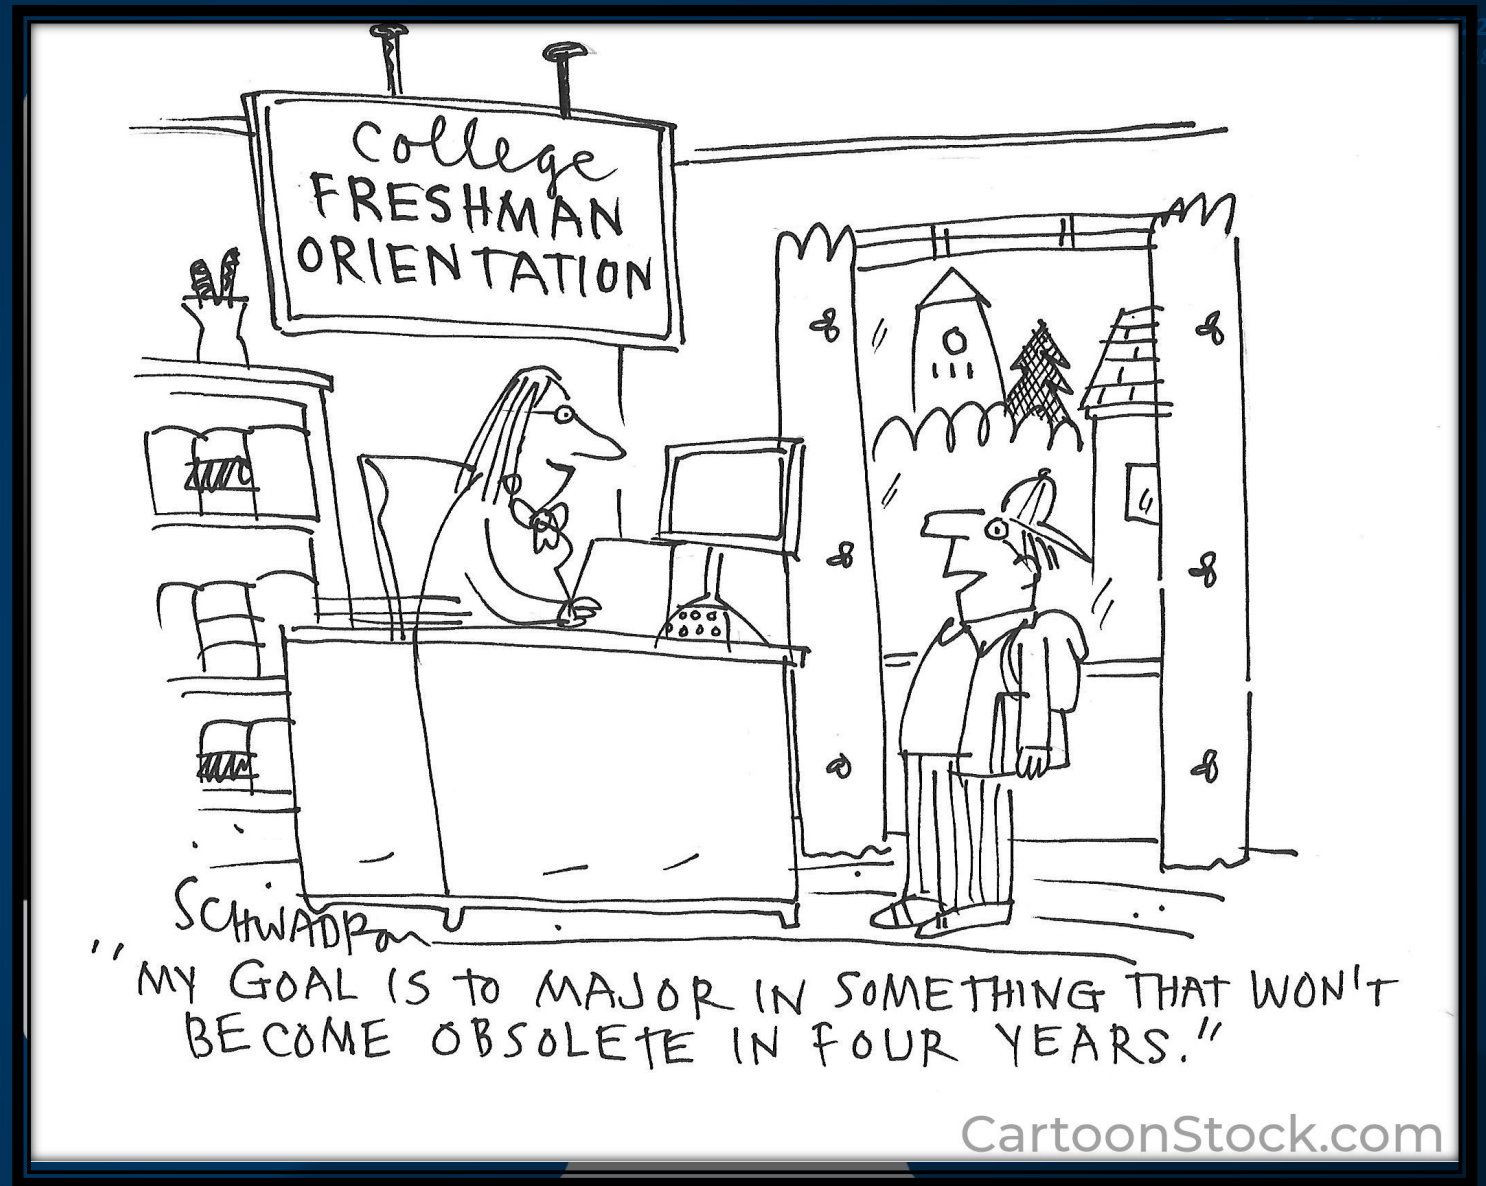 College
FRESHMAN
ORIENTATION
SCHWADRON
"MY GOAL IS TO MAJOR IN SOMETHING THAT WON'T
BECOME OBSOLETE IN FOUR YEARS."
CartoonStock.com